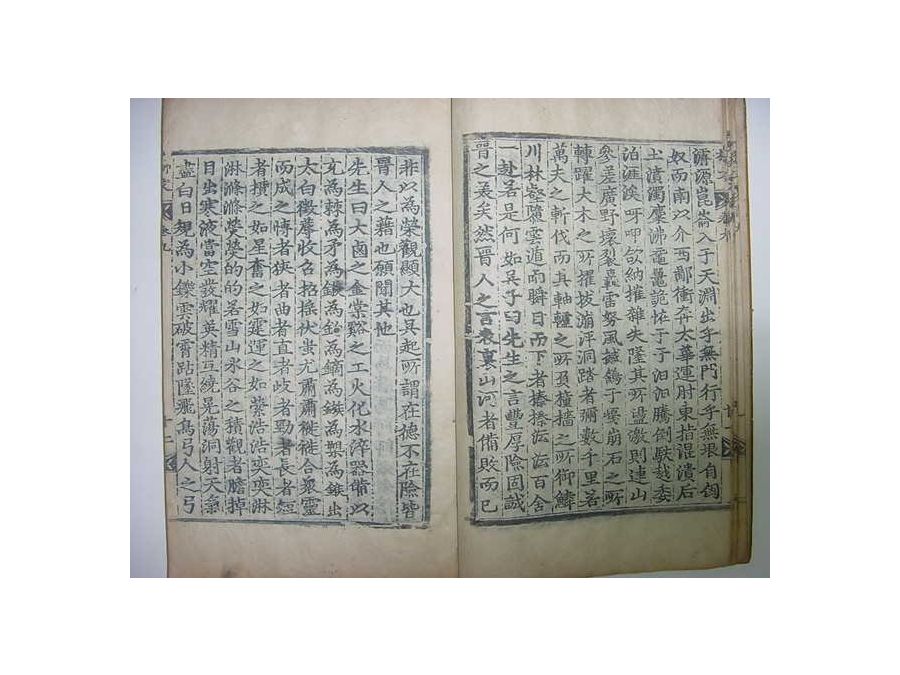 濬源崑崙入于天淵出乎無門行乎無垠自匈
奴而南以介西鄙衝奔太華運肘東指混潰后
土濆濁麋沸黿鼉詭怪于于汩汩騰倒駃越委
泊涯涘呀呷欱納摧雜失墜其所盪激則連山
參差廣野壞裂轟雷努風撼鶴于嵬崩石之所
轉躍大木之所擢拔漰泙洞踏者彌數千里若
萬夫之斬伐而其軸轤之所負橦牆之所御鱗
川林壑隳雲遁雨瞬目而下者榛榛沄沄百舍
一赴若是何如吳子曰先生之言豐厚險固誠
晉之美矣然晉人之言表裏山河者備敗而已
非以為榮觀顯大也且起所謂在德不在險皆
晉人之藉也願聞其他
先生曰大鹵之金棠谿之工火化水淬器備以
充為棘為矛為鍛為鉤為鏑為鏃為槊為鍭出
太白徵蓐收召招搖伏蚩尤肅肅褷褷合衆靈
而成之博者狹者曲者直者歧者勁者長者短
者攢之如星奮之如霆運之如縈浩浩奕奕淋
淋滌滌熒熒的的若雪山氷谷之積觀者膽掉
目出寒液當空發耀英精互繞晃蕩洞射天氣
盡白日規為小鑠雲破霄跕墜飛鳥弓人之弓